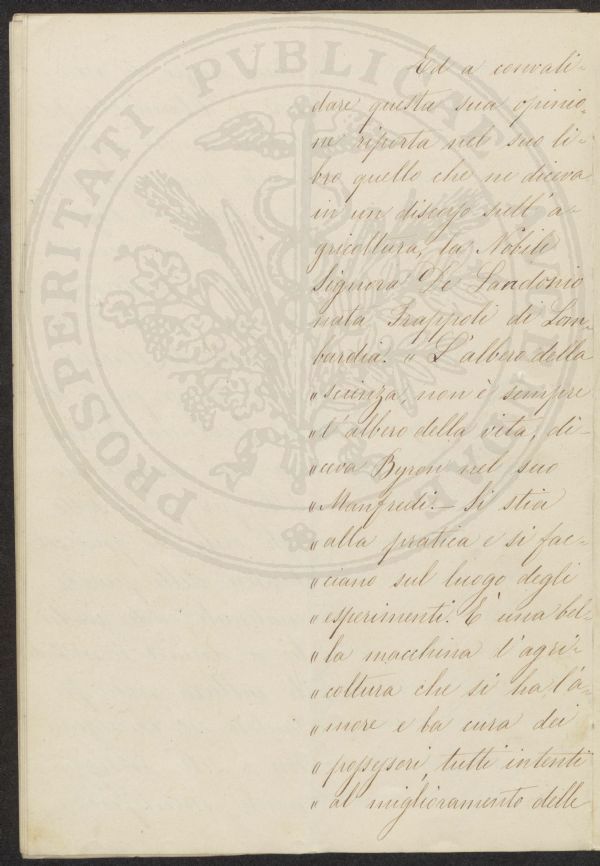 Ed a convali-
dare questa sua opinio-
ne riporta nel suo li-
bro quello che ne diceva
in un discorso sull'a-
gricoltura, la Nobile
Signora De Landonio
nata Frappoli di Lom-
bardia. „ L'albero della
„ scienza, non è sempre
„ l'albero della vita, di-
„ ceva Byron nel suo
„ Manfredi. – Si stia
„ alla pratica e si fac-
„ ciano sul luogo degli
„ esperimenti. È una bel-
„ la macchina l'agri-
„ coltura che si ha l'a-
„ more e la cura dei
„ possessori, tutti intenti
„ al miglioramento delle
PROSPERITATI PVBLICAE